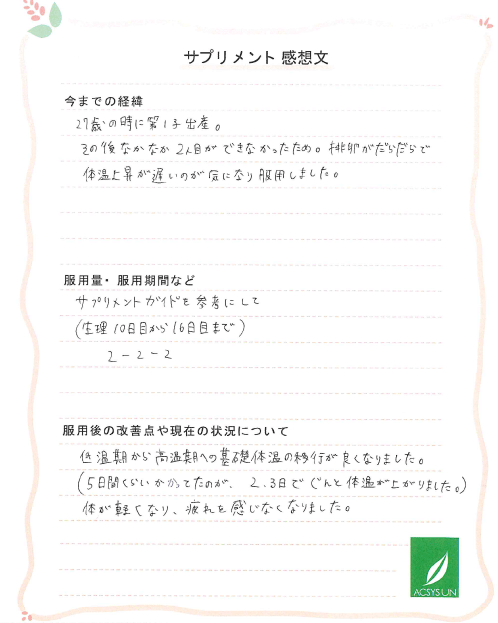 サプリメント 感想文
今までの経緯
27歳の時に第1子出産。
その後なかなか2人目ができなかったため。排卵がだらだらで
体温上昇が遅いのが気になり服用しました。
服用量・服用期間など
サプリメントガイドを参考にして
(生理10日目から16日目まで)
2-2-2
服用後の改善点や現在の状況について
低温期から高温期への基礎体温の移行が良くなりました。
(5日間くらいかかってたのが、2.3日でぐんと体温が上がりました。)
体が軽くなり、疲れを感じなくなりました。
ACSYSUN